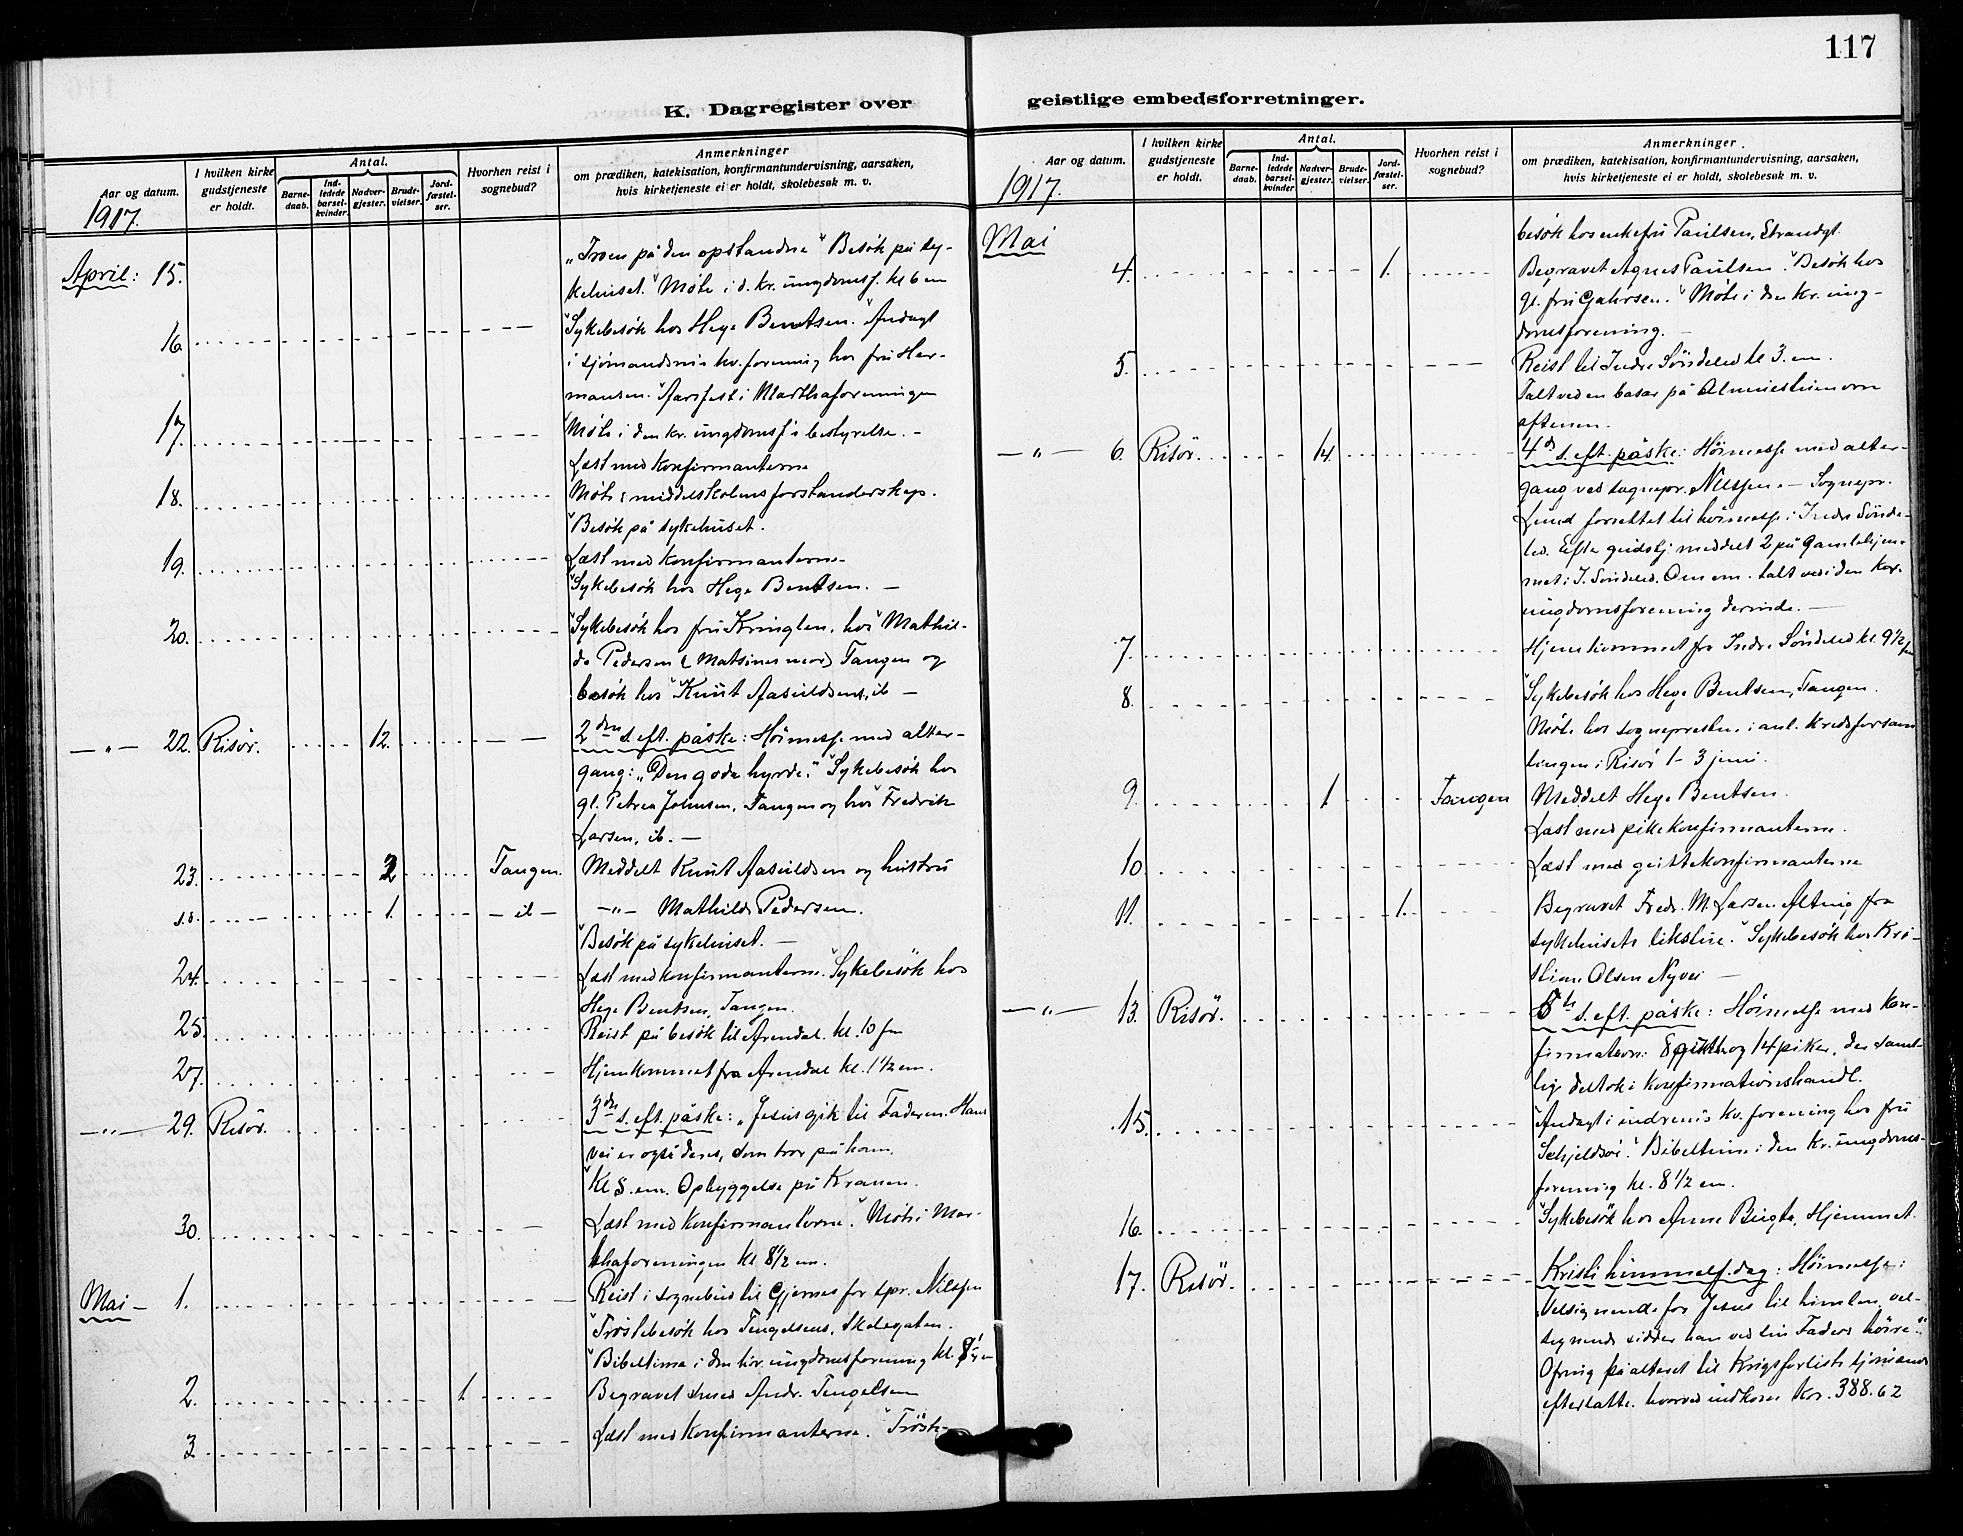 117
K. Dagregister over
Aar og datum.
I hvilken kirke gudstjeneste er holdt.
Antal.
Barne-daab.
Ind-ledede barsel-kvinder.
Nadver-gjester.
Brude-vielser.
Jord-fæstel-ser.
Hvorhen reist i sognebud?
Anmerkninger
om prædiken, katekisation, konfirmantundervisning, aarsaken,
hvis kirketjeneste ei er holdt, skolebesøk m. v.
1917.
April: 15. "Troen på den opstandne" Besøk på sy-
kehuset. Møte i d. kr. ungdomsf. kl 6 em
16. Sykebesøk hos Hege Bentsen. Andagt
i sjømandsmis kv. forening hos fru Her-
mansen. Aarsfest i Marthaforeningen
17. Møte i den kr. ungdomsf's bestyrelse. -
Læst med konfirmanterne
18. Møte i middelskolens forstanderskap.
Besøk på sykehuset.
19. Læst med konfirmanterne.
Sykebesøk hos Hege Bentsen. -
20. Sykebesøk hos fru Kringlen, hos Mathil-
de Pedersen Tangen og
besøk hos Knut Aasuldsens, ib -
-"- 22. Risør. 12. 2den s. eft. påske: Høimesse med alter-
gang: "Den gode hyrde." Sykebesøk hos
gl. Petrea Johnsen, Tangen og hos Fredrik
Larsen, ib. -
23. 2 Tangen. Meddelt Knut Aasuldsen og hustru
s.d. 1. - ib - -"- Mathilde Pedersen.
Besøk på sykehuset. -
24. Læst med konfirmanterne. Sykebesøk hos
Hege Bentsen, Tangen.
25. Reist på besøk til Arendal kl. 10 fm
27. Hjemkommet fra Arendal kl. 1 1/2 em.
-"- 29. Risør. 3die s. eft. påske: "Jesus gik til Faderen. Hans
vei er også deres, som tror på ham.
Kl 5. em. Opbyggelse på Kranen.
30. Læst med konfirmanterne. Møte i Mar-
thaforeningen kl. 8 1/2 em.
Mai - 1. Reist i sognebud til Gjernes for spr. Nilssen
Trøstebesøk hos Tengelsens, Skolegaten.
Bibeltime i den kr. ungdomsforening kl. 8 1/2 em
2. 1. Begravet Andr. Tengelsen
3. Læst med konfirmanterne. Trøste-
geistlige embedsforretninger.
Aar og datum.
I hvilken kirke gudstjeneste er holdt.
Antal.
Barne-daab.
Ind-ledede barsel-kvinder
Nadver-gjester.
Brude-vielser.
Jord-fæstel-ser.
Hvorhen reist i sognebud?
Anmerkninger.
om prædiken, katekisation, konfirmantundervisning, aarsaken,
hvis kirketjeneste ei er holdt, skolebesøk m. v.
1917.
Mai besøk hos enkefru Paulsen, Strandgt.
4. 1. Begravet Agnes Paulsen. Besøk hos
gl. fru Møte i den kr. ung-
domsforening. -
5. Reist til Indre Søndeled kl 3. em.
Talt ved en basar på
aftenen.
-"- 6. Risør. 14. 4de s. eft. påske: Høimesse med alter-
gang ved sognepr. Nilssen. - Sognepr.
Lund forrettet til høimesse i Indre Sønde-
led. Efter gudstj. meddelt 2 på Gamlehjem-
met i I. Søndeled. Om em. talt ved i den kr.
ungdomsforening derinde. -
7. Hjemkommet fra Indre Søndeled kl. 9 1/2 fm
8. Sykebesøk hos Hege Bentsen, Tangen.
Møte hos sognepresten i anl. kredsforsam
lingen i Risør 1-3 juni.
9. 1 Tangen Meddelt Hege Bentsen.
Læst med pikekonfirmanterne.
10 Læst med guttekonfirmanterne
11. 1. Begravet Fredr. M. Larsen. Alting fra
sykehusets likstue. Sykebesøk hos Kri-
stiane Olsen Nyvei -
-"- 13. Risør. 5te s. eft. påske: Høimesse med kon-
firmation: 8 gutter og 14 piker, der samt-
lige deltok i konfirmationshandl.
15. Andagt i indremis kv. forening hos fru
Bibeltime i den kr. ungdoms-
forening kl. 8 1/2 em.
16. Sykebesøk hos Anne Birgte, Hjemmet.
17. Risør. Kristi himmelf.dag: Høimesse:
"Velsignende for Jesus til himlen, vel-
signende sidder han ved sin Faders høire."
Ofring på alteret til krigsforliste sjømænds
efterlatte, hvorved indkom Kr. 388.62